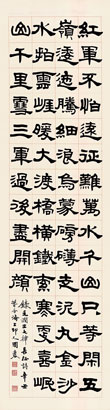 紅軍不怕遠征難萬水千山只等閑五
嶺逶迤騰細浪烏蒙磅礴走泥丸金沙
水拍雲崖暖大渡橋橫鐵索寒更喜岷
山千里雪三軍過後盡開顏
律長征詩